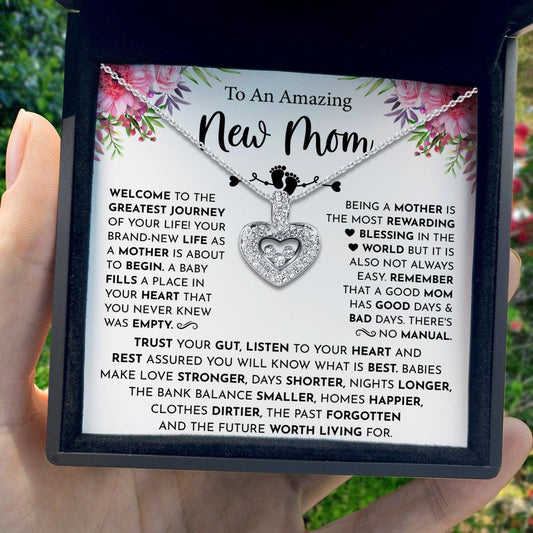 To An Amazing
New Mom
WELCOME TO THE
GREATEST JOURNEY
OF YOUR LIFE! YOUR
BRAND-NEW LIFE AS
A MOTHER IS ABOUT
TO BEGIN. A BABY
FILLS A PLACE IN
YOUR HEART THAT
YOU NEVER KNEW
WAS EMPTY.
BEING A MOTHER IS
THE MOST REWARDING
BLESSING IN THE
WORLD BUT IT IS
ALSO NOT ALWAYS
EASY. REMEMBER
THAT A GOOD MOM
HAS GOOD DAYS &
BAD DAYS. THERE'S
NO MANUAL.
TRUST YOUR GUT, LISTEN TO YOUR HEART AND
REST ASSURED YOU WILL KNOW WHAT IS BEST. BABIES
MAKE LOVE STRONGER, DAYS SHORTER, NIGHTS LONGER,
THE BANK BALANCE SMALLER, HOMES HAPPIER,
CLOTHES DIRTIER, THE PAST FORGOTTEN
AND THE FUTURE WORTH LIVING FOR.